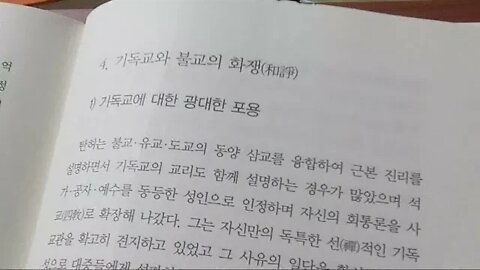 역
정
4. 기독교와 불교의 화쟁(和諍)
1) 기독교에 대한 광대한 포용
탄허는 불교·유교·도교의 동양 삼교를 융합하여 근본 진리를
설명하면서 기독교의 교리도 함께 설명하는 경우가 많았으며 석
가·공자·예수를 동등한 성인으로 인정하며 자신의 회통론을 사
교(四敎)로 확장해 나갔다. 그는 자신만의 독특한 선(禪)적인 기독
교관을 확고히 견지하고 있었고 그 사유의 일단을
적으로 대중들에게